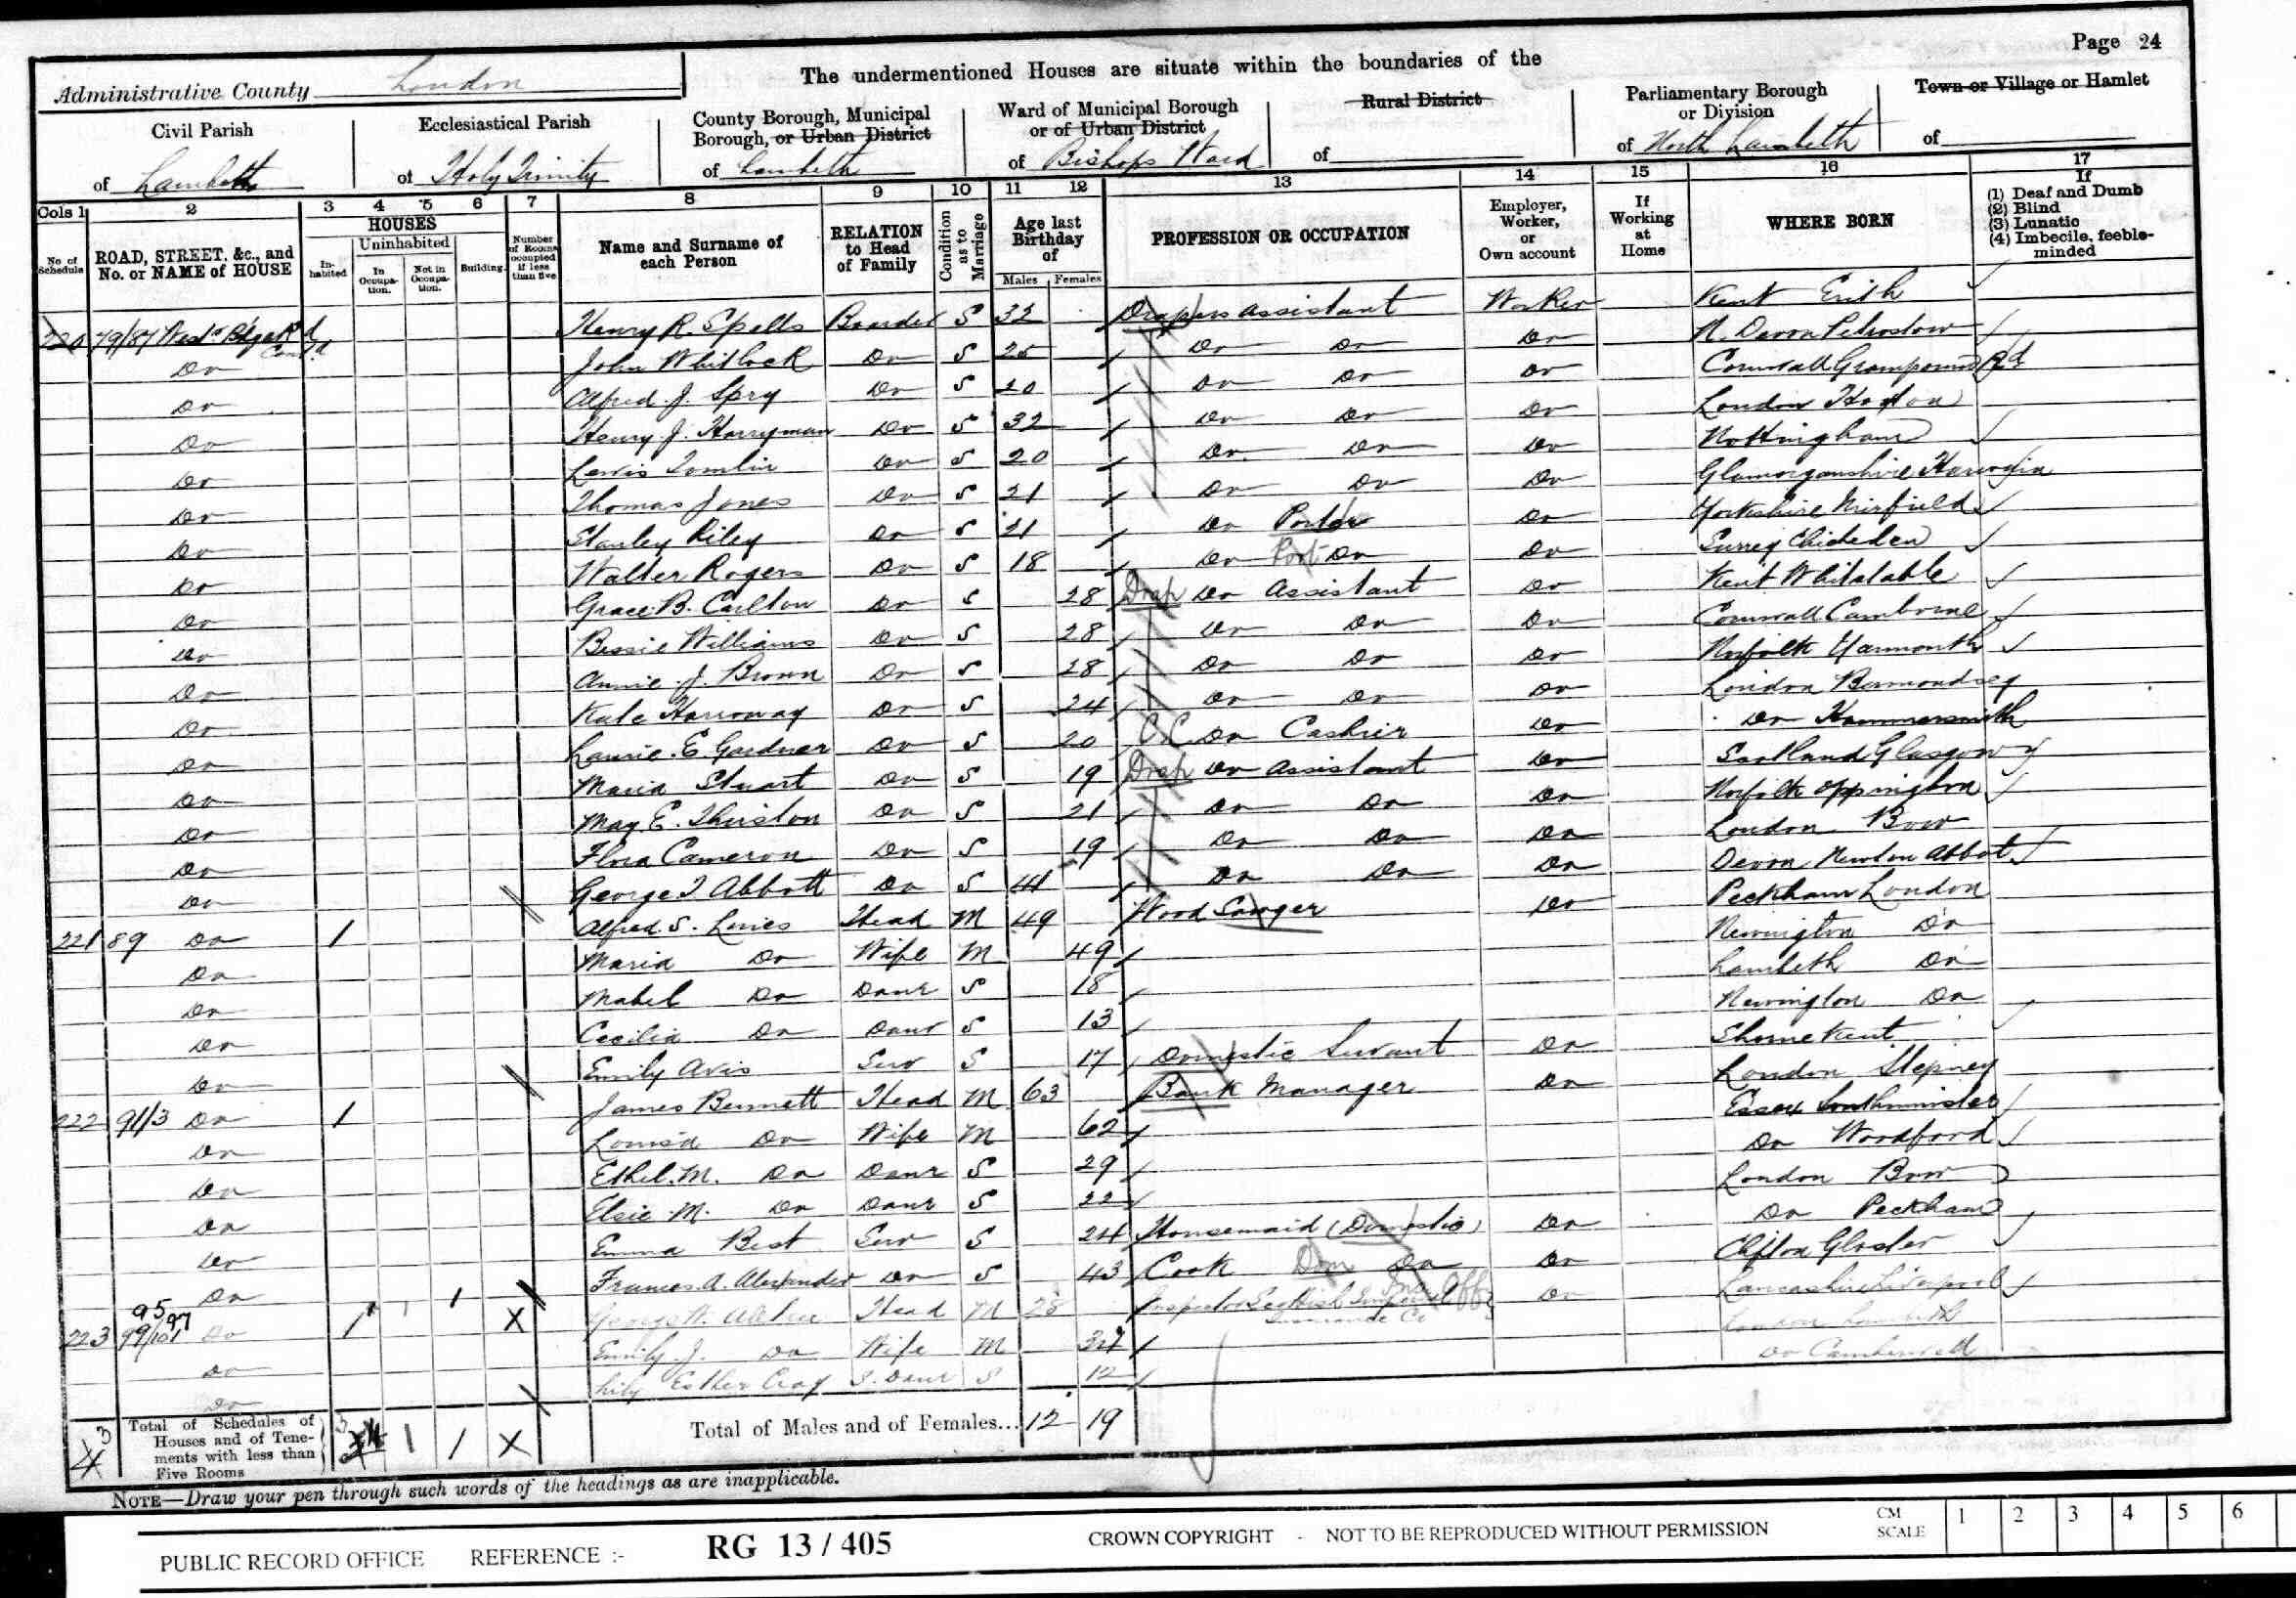 Page 24
Administrative County London
The undermentioned Houses are situate within the boundaries of the
Civil Parish
of Lambeth
Ecclesiastical Parish
of Holy Trinity
County Borough, Municipal
Borough, or Urban District
of Lambeth
Ward of Municipal Borough
or of Urban District
of Bishops Ward
Rural District
of
Parliamentary Borough
or Division
of North Lambeth
Town or Village or Hamlet
of
Cols 1 2 3 4 5 6 7 8 9 10 11 12 13 14 15 16 17
No of Schedule
ROAD, STREET, &c., and
No. or NAME of HOUSE
HOUSES
In-habited
Uninhabited
In Occupa-tion.
Not in Occupa-tion.
Building
Number of Rooms occupied if less than five
Name and Surname of
each Person
RELATION
to Head
of Family
Condition as to Marriage
Age last
Birthday
of
Males Females
PROFESSION OR OCCUPATION
Employer,
Worker,
or
Own account
If
Working
at
Home
WHERE BORN
If
(1) Deaf and Dumb
(2) Blind
(3) Lunatic
(4) Imbecile, feeble-
minded
220 79/87 Westr Bdge Rd Contd Henry R. Spells Boarder S 32 Drapers Assistant Worker Kent Erith
Do John Whitlock Do S 25 Do Do Do N. Devon
Do Alfred J. Spry Do S 20 Do Do Do Cornwall Grampound Rd
Do Henry J. Harryman Do S 32 Do Do Do London Hoxton
Do Lewis Tomlin Do S 20 Do Do Do Nottingham
Do Thomas Jones Do S 21 Do Do Do Glamorganshire
Do Stanley Riley Do S 21 Do Porter Do Yorkshire Mirfield
Do Walter Rogers Do S 18 Do Port Do Do Surrey
Do Grace B. Carlton Do S 28 Drap Do Assistant Do Kent Whitstable
Do Bessie Williams Do S 28 Do Do Do Cornwall Camborne
Do Annie J. Brown Do S 28 Do Do Do Norfolk Yarmouth
Do Kate Harroway Do S 24 Do Do Do London Bermondsey
Do Laurie E. Gardner Do S 20 C.C. Do Cashier Do Do Hammersmith
Do Maria Stuart Do S 19 Drap Do Assistant Do Scotland Glasgow
Do May E. Thirston Do S 21 Do Do Do Norfolk
Do Flora Cameron Do S 19 Do Do Do London Bow
Do George T Abbott Do S 41 Do Do Do Devon Newton Abbot
221 89 Do 1 Alfred S. Head M 49 Wood Sawyer Do Peckham London
Do Maria Do Wife M 49 Newington Do
Do Mabel Do Daur S 18 Lambeth Do
Do Cecilia Do Daur S 13 Newington Do
Do Emily Avis Serv S 17 Domestic Servant Do Shorne Kent
222 91/3 Do 1 James Bennett Head M 63 Bank Manager Do London Stepney
Do Louisa Do Wife M 62 Essex Southminster
Do Ethel M. Do Daur S 29 Do Woodford
Do Elsie M. Do Daur S 22 London Bow
Do Emma Best Serv S 24 Housemaid (Domestic) Do Do Peckham
Do Frances A. Alexander Do S 43 Cook Dom Do Do Clifton Gloster
95 97
223 99/101 Do 1 George W. Head M 28 Inspector Scottish Imperial Insurance Co Do Lancashire Liverpool
Do Emily J. Do Wife M 34 London Lambeth
Do Lily Esther S. Daur S 12 Do Camberwell
3
Total of Schedules of
Houses and of Tene-
ments with less than
Five Rooms
3 1 1 X
Total of Males and of Females... 12 19
NOTE—Draw your pen through such words of the headings as are inapplicable.
PUBLIC RECORD OFFICE REFERENCE :- RG 13 / 405 CROWN COPYRIGHT - NOT TO BE REPRODUCED WITHOUT PERMISSION
CM SCALE 1 2 3 4 5 6